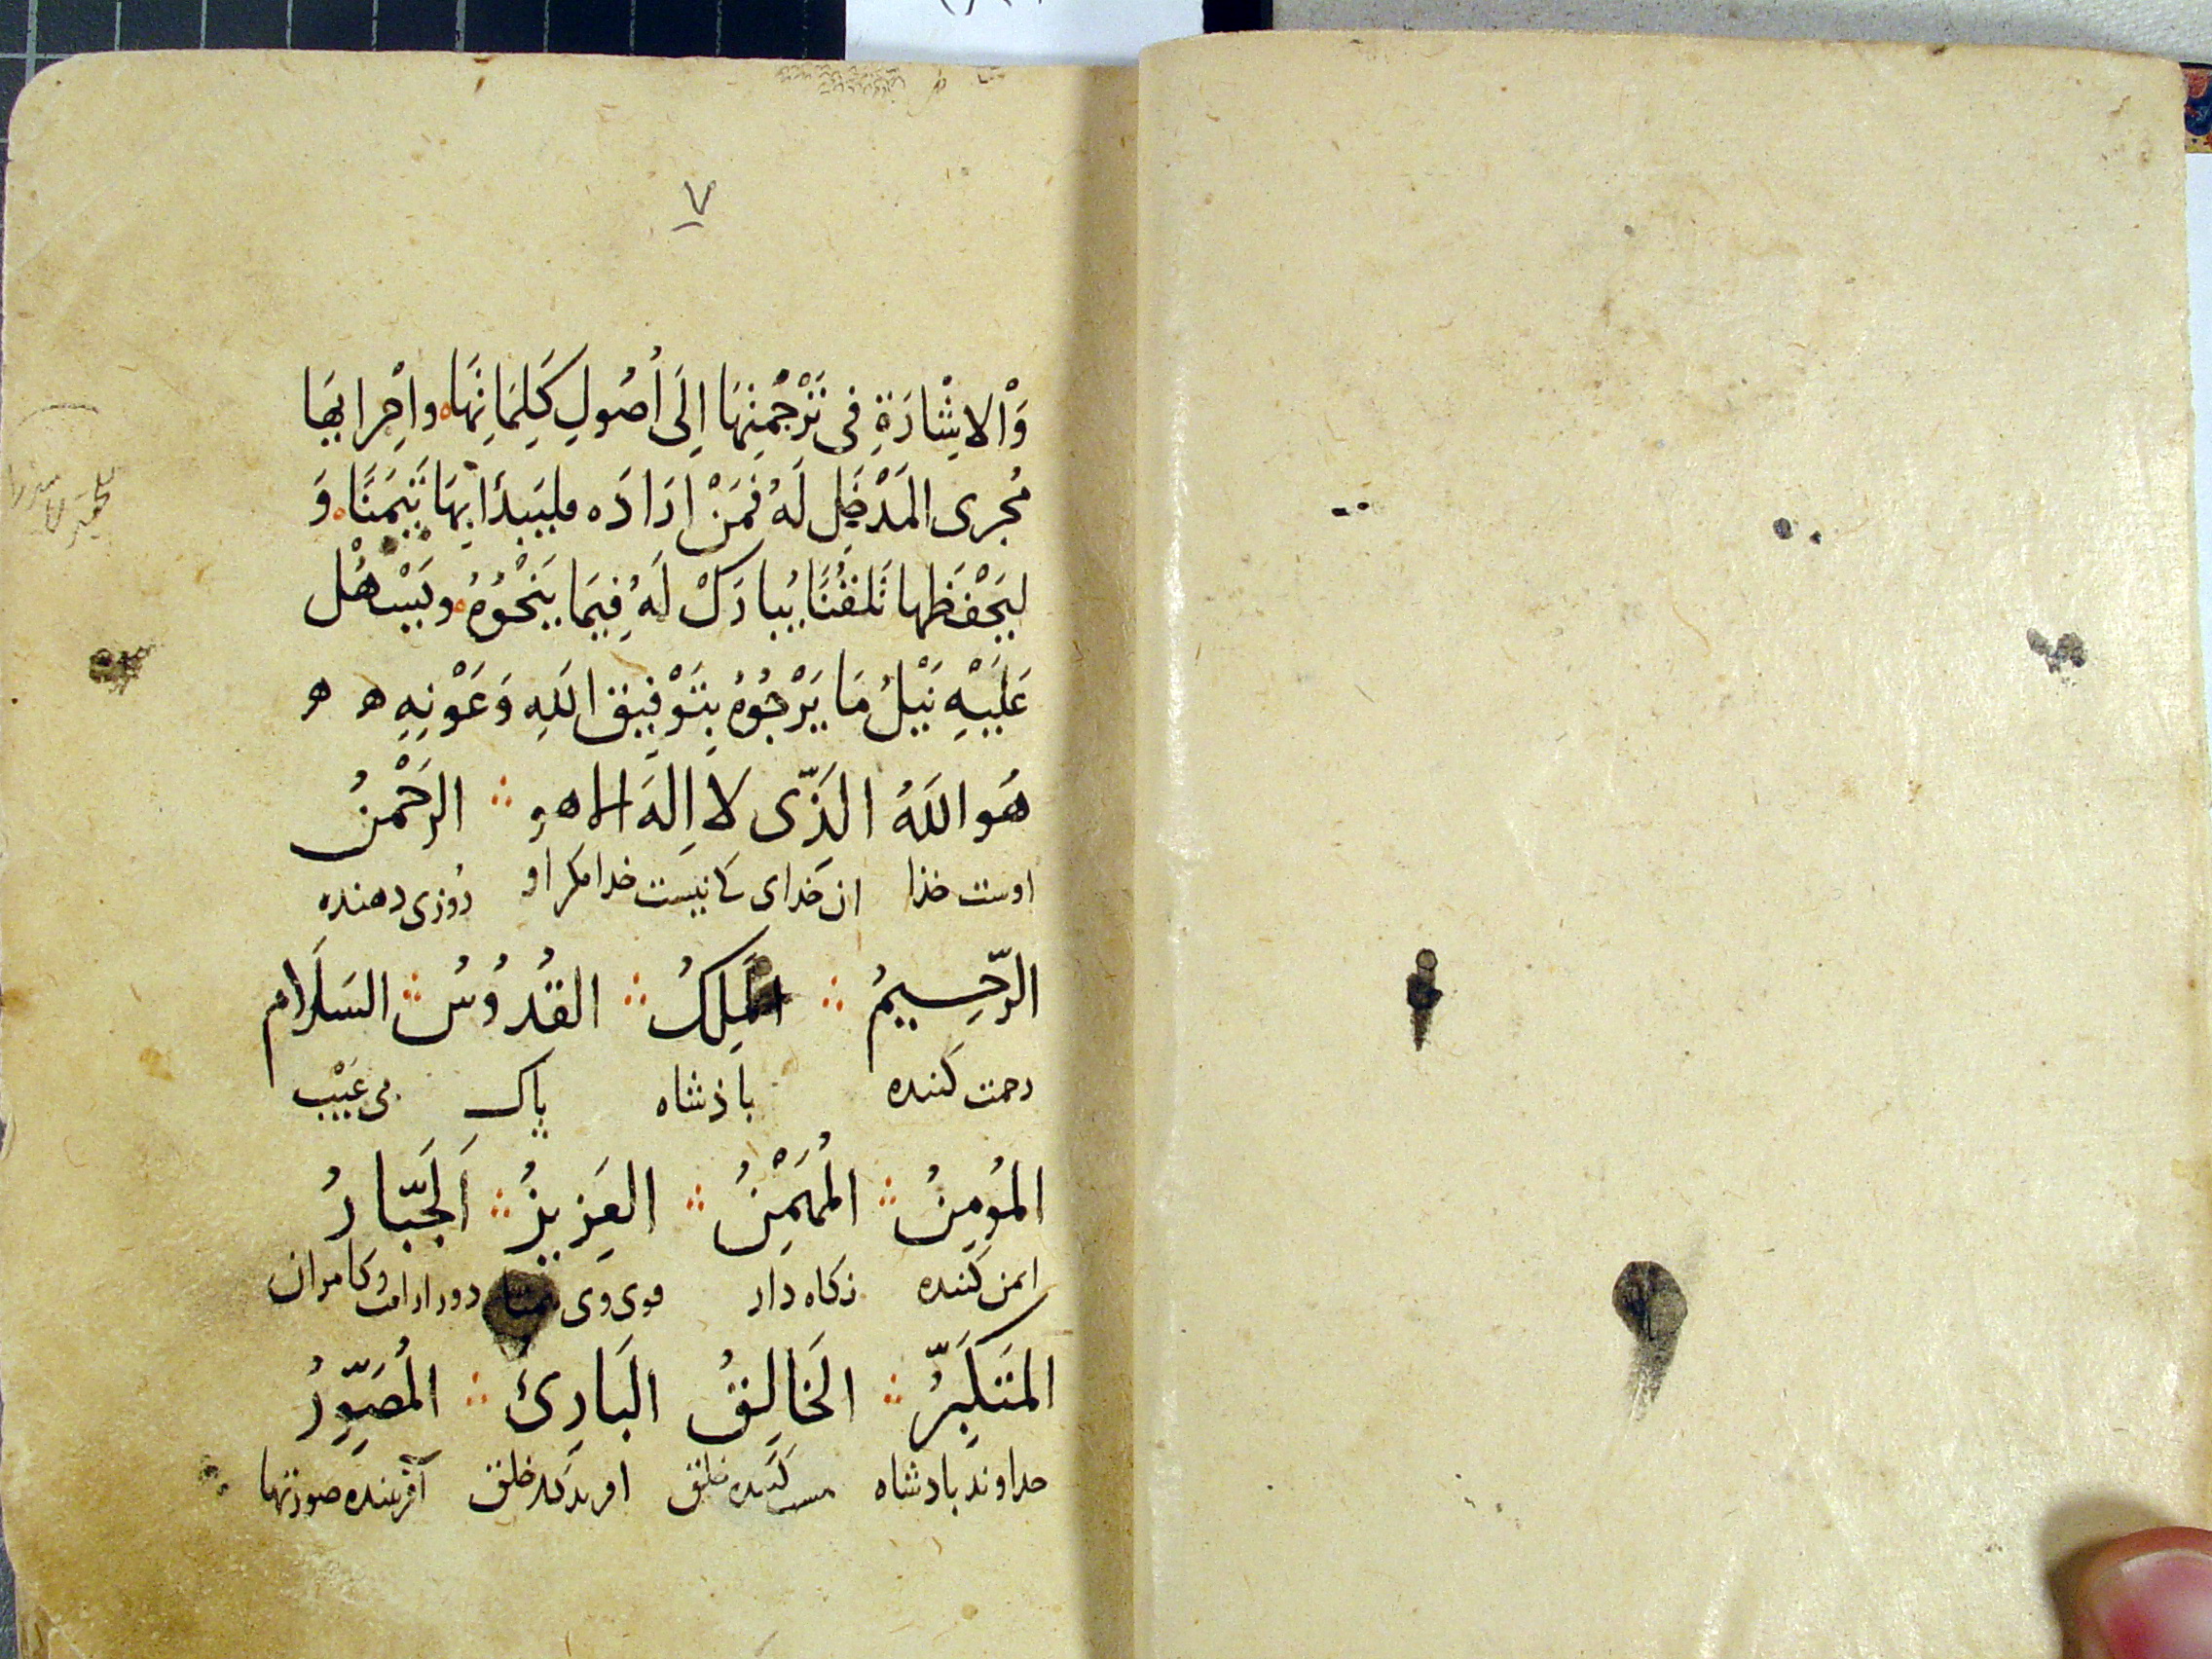 ٧
وَالاِشَارَةِ فى تَرْجُمِتِهَا اِلَى اُصُولِ كَلِمَاتِهَا واِجْرابِهَا
مُجرى المَدْخَلِ لَهُ فَمَنْ ارَادَه فليَبدَأ بِهَا تَيَمُنًا وَ
ليَحْفَظها تَلَقُنًا يُبارَكْ لَهُ فِيمَا يَنْحُوُهُ ويَسْهُل
عَلَيْهِ نَيْلُ مَا يَرْجُوُهُ بِتَوْفِيقِ اللهِ وَعَوْنِهِ ه ه
هُو اللهُ الَذّى لا اِلهَ الا هو ∴ الرَحْمنُ
اوست خذا ان خداى كَ نيست خدا مكر او رُوزى دهنده
الرّحِيمُ ∴ المَلِكُ ∴ القُدُوُسُ ∴ السَلَام
رحمت كننده باذشاه پاك بى عَيْب
المُومِنُ ∴ المُهَمْنُ ∴ العَزِيزُ ∴ اَلجَبّارُ
ايمن كننده نكاه دار قوى وى دور از افت وكامران
المتَكَبِّرُ ∴ الخَالِقُ البَارِئ ∴ المُصَوِّرُ
خداوند بادشاه كننده خلق افريدكار خلق آفريننده صورتها